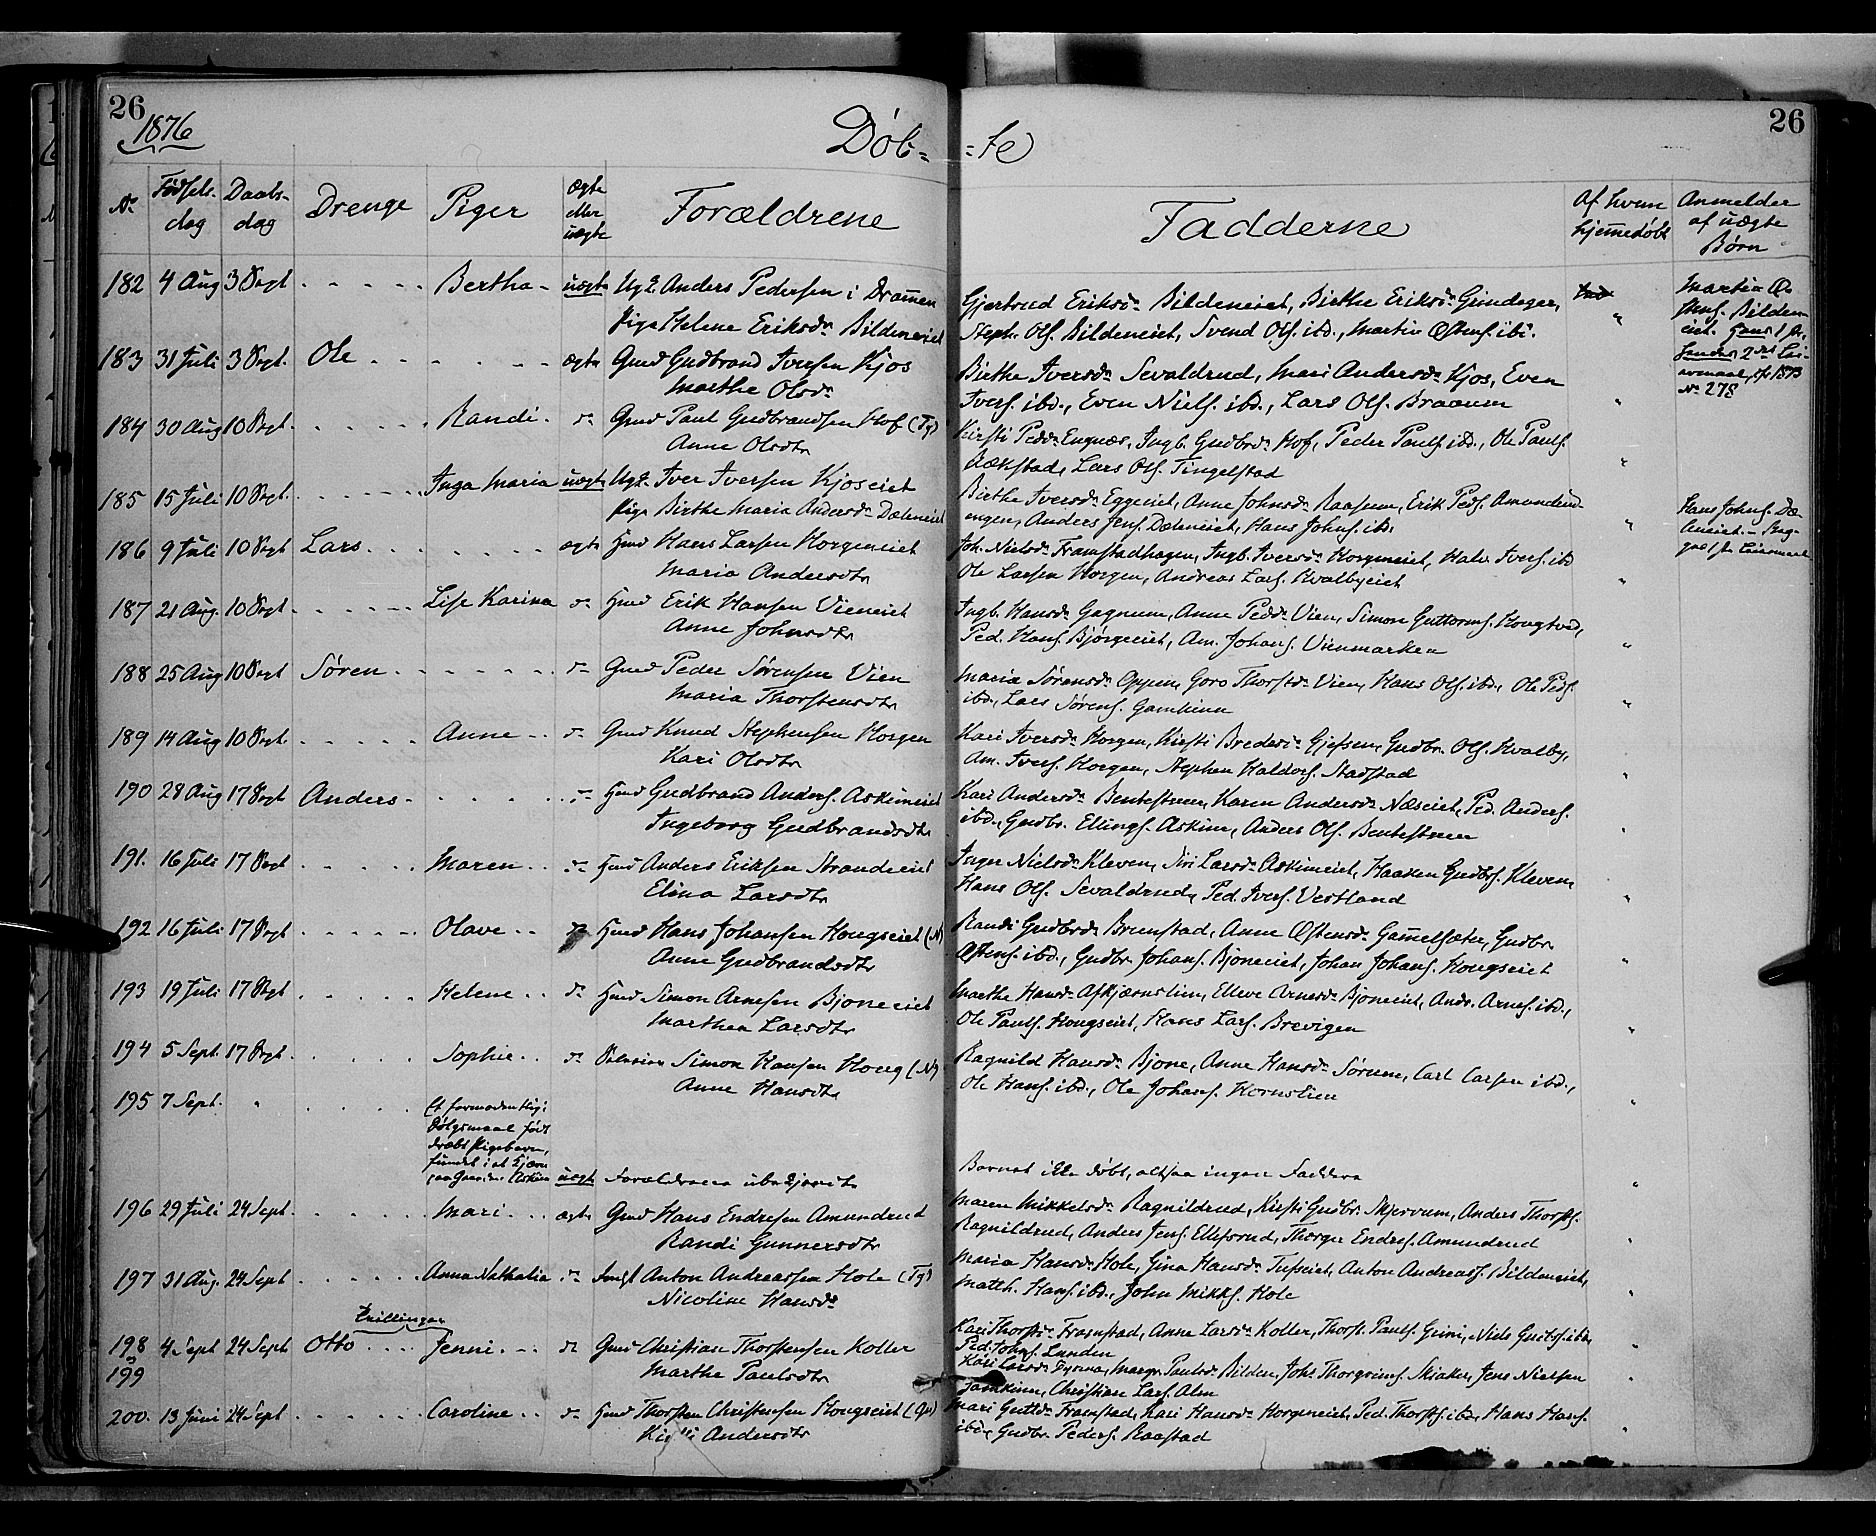 26
1876
Døb=
=te
26
No
Fødsels-
dag
Daabs-
dag
Drenge
Piger
Ægte
eller
uægte
Forældrene
Fadderne
Af hvem
hjemmedøbt
Anmelder
af uægte
Børn
182 4 Aug 3 Sept. Bertha uægte Ugk. Anders Pedersen i Drammen
Pige Helene Eriksdr Bildeneiet
Gjertrud Eriksdr Bildeneiet, Birthe Eriksdr Grindager,
Steph. Ols. Bildeneiet, Svend Ols. ibd., Martin Østens. ibd.
Martin Ø-
stens. Bilden-
eiet. Hans 1ste,
hendes 2det Lei-
ermaal, cfr 1873
No 278
183 31 Juli 3 Sept. Ole ægte Gmd Gudbrand Iversen Kjos
Marthe Olsdr
Birthe Iversdr Sevaldrud, Mari Andersdr Kjos, Even
Ivers. ibd., Even Niels. ibd., Lars Ols. Braaum
184 30 Aug 10 Sept. Randi do Gmd Paul Gudbrandsen Hof (Tg)
Anne Olsdtr
Kirsti Pedsdr Engnæs, Ingb. Gudbrdr Hof, Peder Pauls. ibd., Ole Pauls.
Rækstad, Lars Ols. Tingelstad
185 15 Juli 10 Sept. Inga Maria uægte Ugk. Iver Iversen Kjoseiet
Pige Birthe Maria Andersdr Dæleneiet
Birthe Iversdr Eggeeiet, Anne Johnsdr Raasum, Erik Peds. Amundrud-
engen, Anders Jens. Dæleneiet, Hans Johns. ibd.
Hans Johns. Dæ-
leneiet. Beg-
ges 1ste Leiermaal
186 9 Juli 10 Sept Lars ægte Hmd Hans Larsen Horgeneiet
Maria Andersdtr
Joh. Nielsdr Framstadhagen, Ingb. Iversdr Horgeneiet, Halv. Ivers. ibd
Ole Larsen Horgen, Andreas Lars. Hvalbyeiet
187 21 Aug. 10 Sept Lise Karina do Hmd Erik Hansen Vieneiet
Anne Johnsdtr
Ingb. Hansdr Gagnum, Anne Pedsdr Vien, Simon Guttorms. Hougtved,
Ped. Hans. Bjørgeeiet, Am. Johans. Vienmarken
188 25 Aug 10 Sept Søren do Gmd Peder Sørensen Vien
Maria Thorstensdtr
Maria Sørensdr Oppen, Goro Thorstdr Vien, Hans Ols. ibd., Ole Peds.
ibd., Lars Sørens. Gamkinn
189 14 Aug 10 Sept. Anne do Gmd Knud Stephensen Horgen
Kari Olsdtr
Kari Iversdr Horgen, Kirsti Bredesdr Gjefsen, Gudbr. Ols. Hvalby,
Am. Ivers. Horgen, Stephen Haldors. Stadstad
190 28 Aug 17 Sept Anders do Hmd Gudbrand Anders. Askimeiet
Ingeborg Gudbrandsdtr
Kari Andersdr Bentestuen, Karen Andersdr Næseiet, Ped. Anders.
ibd., Gudbr. Ellings. Askim, Anders Ols. Bentestuen
191. 16 Juli 17 Sept Maren do Hmd Anders Eriksen Strandeiet
Elina Larsdtr
Inger Nielsdr Kleven, Siri Larsdr Askimeiet, Haaken Gudbs. Kleven,
Hans Ols. Sevaldrud, Ped. Ivers. Vestland
192 16 Juli 17 Sept Olave do Hmd Hans Johansen Hougseiet (N)
Anne Gudbrandsdtr
Randi Gudbrdr Brunstad, Anne Østensdr Gammelsæter, Gudbr.
Østens. ibd., Gudbr. Johans. Bjoneeiet, Johan Johans. Hougseiet
193 19 Juli 17 Sept Helene do Hmd Simon Arnesen Bjoneeiet
Marthea Larsdtr
Marthe Hansdr Askjærnslien, Elleve Arnesdr Bjoneeiet, Andr. Arnes. ibd.,
Ole Pauls. Hougseiet, Hans Lars. Brevigen
194 5 Sept. 17 Sept Sophie do Simon Hansen Houg (N)
Anne Hansdtr
Ragnild Hansdr Bjone, Anne Hansdr Sørum, Carl Larsen ibd.,
Ole Hans. ibd., Ole Johans. Hornslien
195 7 Sept. Et formodentlig i
Dølgsmaal født
dræbt Pigebarn,
fundet i et Tjern
paa Gaarden Askim uægte Forældrene ubekjendte
Barnet ikke døbt, altsaa ingen Faddere
196 29 Juli 24 Sept Mari ægte Gmd Hans Endresen Amundrud
Randi Gunnersdtr
Maren Mikkelsdr Ragnildrud, Kirsti Gudbr. Skjervum, Anders Thorsts.
Ragnildrud, Anders Jens. Ellefsrud, Thorger Endres. Amundrud
197 31 Aug. 24 Sept Anna Nathalia do Anton Andreassen Hole (Tg)
Nicoline Hansdr
Maria Hansdr Hole, Gina Hansdr Tufseiet, Anton Andreass. Bildeneiet,
Matth. Hans. ibd., John Mikks. Hole
Tvillinger
198 4 Sept 24 Sept Otto Jenni do Gmd Christian Thorstensen Koller
199
Marthe Paulsdtr
Kari Thorstdr Framstad, Anne Larsdr Koller, Thorst. Pauls. Grini, Niels ibd.
Ped. Johns. Lunden
Kari Larsdr Dynna, Margr. Paulsdr Bilden, Johs Thorgrims. Skiaker, Jens Nielsen
Gamkinn, Christian Lars. Alm
200. 13 Juni 24 Sept Caroline do Hmd Thorsten Christensen Hougseiet (Gr)
Kirsti Andersdtr
Mari Guttdr Framstad, Kari Hansdr Horgeneiet, Ped. Thorsts. ibd., Hans Hans.
ibd., Gudbr. Peders. Raastad